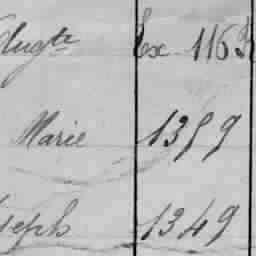 Augte Ex 1163
Marie 1359
seph 1349